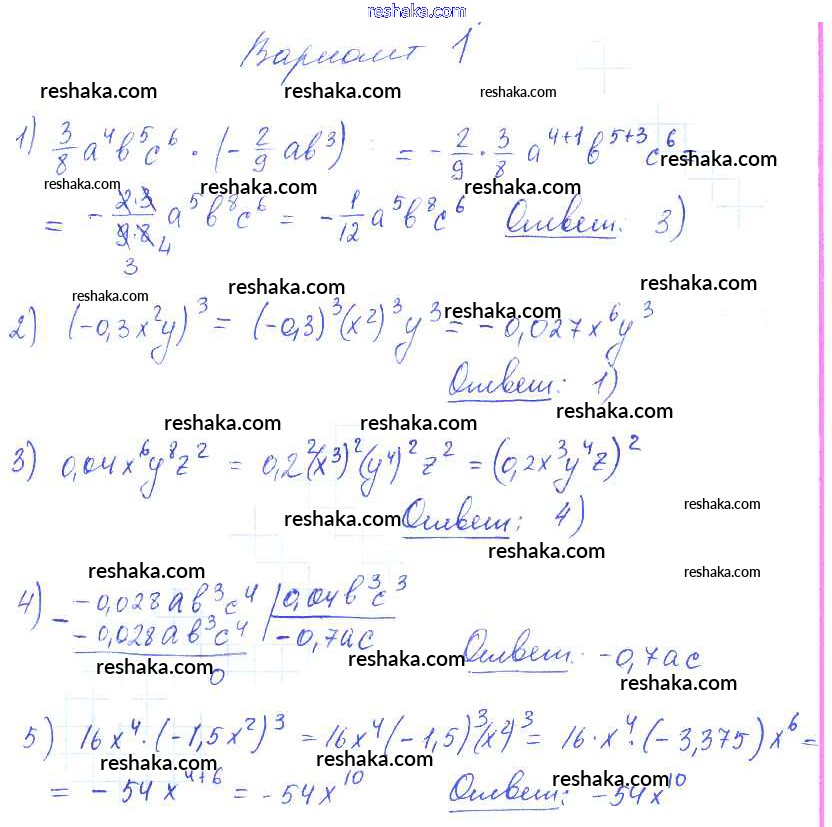 reshaka.com
Вариант 1
reshaka.com reshaka.com reshaka.com
1) 3/8 a⁴b⁵c⁶ · (-2/9 ab³) = -2/9 · 3/8 a⁴⁺¹b⁵⁺³c⁶ =
reshaka.com
reshaka.com reshaka.com reshaka.com
= - 2·3/9·8 a⁵b⁸c⁶ = -1/12 a⁵b⁸c⁶ Ответ: 3)
3 4
reshaka.com reshaka.com reshaka.com
reshaka.com
2) (-0,3x²y)³ = (-0,3)³(x²)³y³ = -0,027x⁶y³
Ответ: 1)
reshaka.com reshaka.com reshaka.com
3) 0,04x⁶y⁸z² = 0,2²(x³)²(y⁴)²z² = (0,2x³y⁴z)²
reshaka.com reshaka.com
Ответ: 4)
reshaka.com
reshaka.com reshaka.com
4) - -0,028ab³c⁴ | 0,04b³c³
-0,028ab³c⁴ | -0,7ac
0
Ответ: -0,7ac
reshaka.com reshaka.com
reshaka.com
5) 16x⁴·(-1,5x²)³ = 16x⁴(-1,5)³(x²)³ = 16·x⁴·(-3,375)x⁶ =
reshaka.com reshaka.com
= -54x⁴⁺⁶ = -54x¹⁰ Ответ: -54x¹⁰
reshaka.com reshaka.com